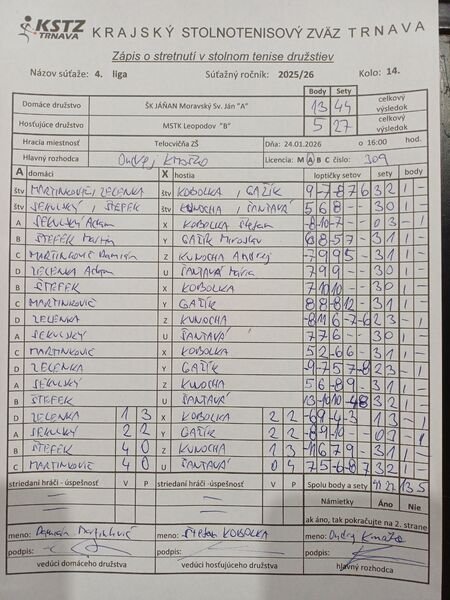 KSTZ
TRNAVA
KRAJSKÝ STOLNOTENISOVÝ ZVÄZ TRNAVA
Zápis o stretnutí v stolnom tenise družstiev
Názov súťaže: 4. liga Súťažný ročník: 2025/26 Kolo: 14.
Body Sety
Domáce družstvo ŠK JÁŇAN Moravský Sv. Ján "A" 13 44 celkový výsledok
Hosťujúce družstvo MSTK Leopodov "B" 5 27 celkový výsledok
Hracia miestnosť Telocvičňa ZŠ Dňa: 24.01.2026 o 16:00 hod.
Hlavný rozhodca Ondrej Licencia: M A B C číslo: 309
A domáci X hostia loptičky setov sety body
štv MARTINKOVIČ, ZELENKA KOBOLKA, GAŽÍK 9 -7 -8 7 6 3 2 1 -
štv SEKULSKÝ, ŠTEFEK štv KUNOCHA, ŠANTAVÁ 5 6 8 - - 3 0 1 -
A SEKULSKÝ Adam X KOBOLKA Štefan -8 -10 -7 - - 0 3 - 1
B ŠTEFEK Martin Y GAŽÍK Miroslav 6 8 -5 7 - 3 1 1 -
C MARTINKOVIČ Damián Z KUNOCHA Andrej -7 9 9 5 - 3 1 1 -
D ZELENKA Adam U ŠANTAVÁ Mária 7 9 9 - - 3 0 1 -
B ŠTEFEK X KOBOLKA 7 10 10 - - 3 0 1 -
C MARTINKOVIČ Y GAŽÍK 8 8 -8 12 - 3 1 1 -
D ZELENKA Z KUNOCHA -8 11 6 -7 -6 2 3 - 1
A SEKULSKÝ U ŠANTAVÁ 7 7 6 - - 3 0 1 -
C MARTINKOVIČ X KOBOLKA 5 2 -6 6 - 3 1 1 -
D ZELENKA Y GAŽÍK -9 -7 5 7 -8 2 3 - 1
A SEKULSKÝ Z KUNOCHA 5 6 -8 9 - 3 1 1 -
B ŠTEFEK U ŠANTAVÁ 13 -10 10 -4 8 3 2 1 -
D ZELENKA 1 3 X KOBOLKA 2 2 -6 9 -4 -3 - 1 3 - 1
A SEKULSKÝ 2 2 Y GAŽÍK 2 2 -8 -9 -10 - - 0 3 - 1
B ŠTEFEK 4 0 Z KUNOCHA 1 3 -11 6 7 9 - 3 1 1 -
C MARTINKOVIČ 4 0 U ŠANTAVÁ 0 4 7 5 -6 -8 7 3 2 1 -
striedaní hráči - úspešnosť V P striedaní hráči - úspešnosť V P Spolu body a sety 44 27 13 5
Námietky Áno Nie
ak áno, tak pokračujte na 2. strane
meno: Damián Martinkovič meno: Štefan KOBOLKA meno: Ondrej
podpis: podpis: podpis:
vedúci domáceho družstva vedúci hosťujúceho družstva hlavný rozhodca